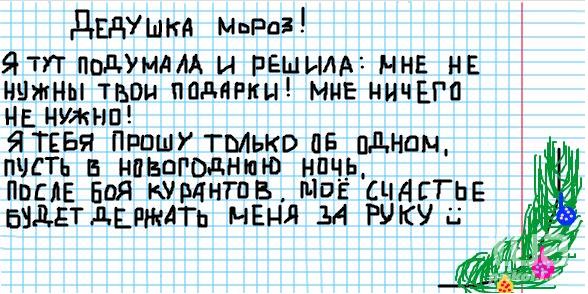 ДЕДУШКА МОРОЗ!
Я ТУТ ПОДУМАЛА И РЕШИЛА: МНЕ НЕ
НУЖНЫ ТВОИ ПОДАРКИ! МНЕ НИЧЕГО
НЕ НУЖНО!
Я ТЕБЯ ПРОШУ ТОЛЬКО ОБ ОДНОМ,
ПУСТЬ В НОВОГОДНЮЮ НОЧЬ,
ПОСЛЕ БОЯ КУРАНТОВ, МОЁ СЧАСТЬЕ
БУДЕТ ДЕРЖАТЬ МЕНЯ ЗА РУКУ